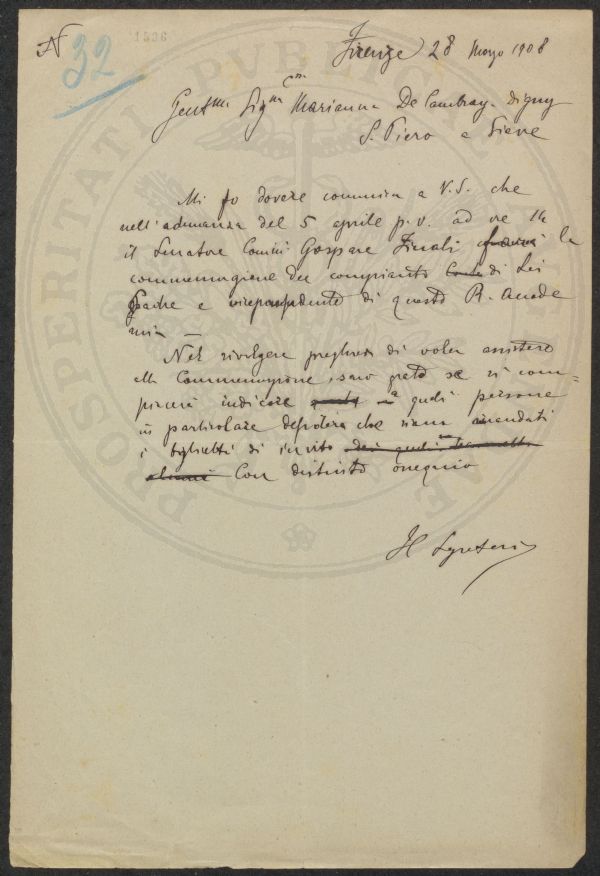 N 32 1536
Firenze 28 Marzo 1908
Gentma Sigra Cssa Marianna De Cambray-Digny
S. Piero a Sieve
Mi fo dovere comunicare a V.S. che
nell'adunanza del 5 aprile p.v. ad ore 14
il Senatore Comm Gaspare Finali farà la
commemorazione del compianto di Lei
Padre e vicepresidente di questa R. Accade
mia —
Nel rivolgere preghiera di voler assistere
alla Commemorazione, sarò grato se si com=
piacerà indicare a quali persone
in particolare desidera che siano mandati
i biglietti di invito
Con distinto ossequio
Il Segretario
PROSPERITATI PVBLICAE